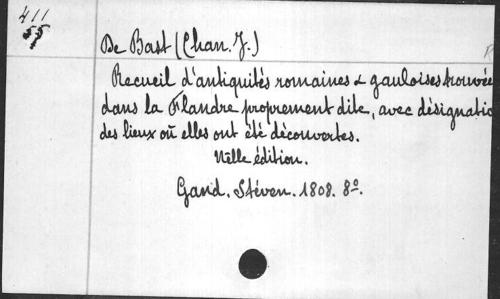 411
55
De Bast (Chan. J.)
Recueil d'antiquités romaines & gauloises trouvée
dans la Flandre proprement dite, avec désignatio
des lieux où elles ont été découvertes.
Nlle édition.
Gand. Stéven. 1808. 8º.